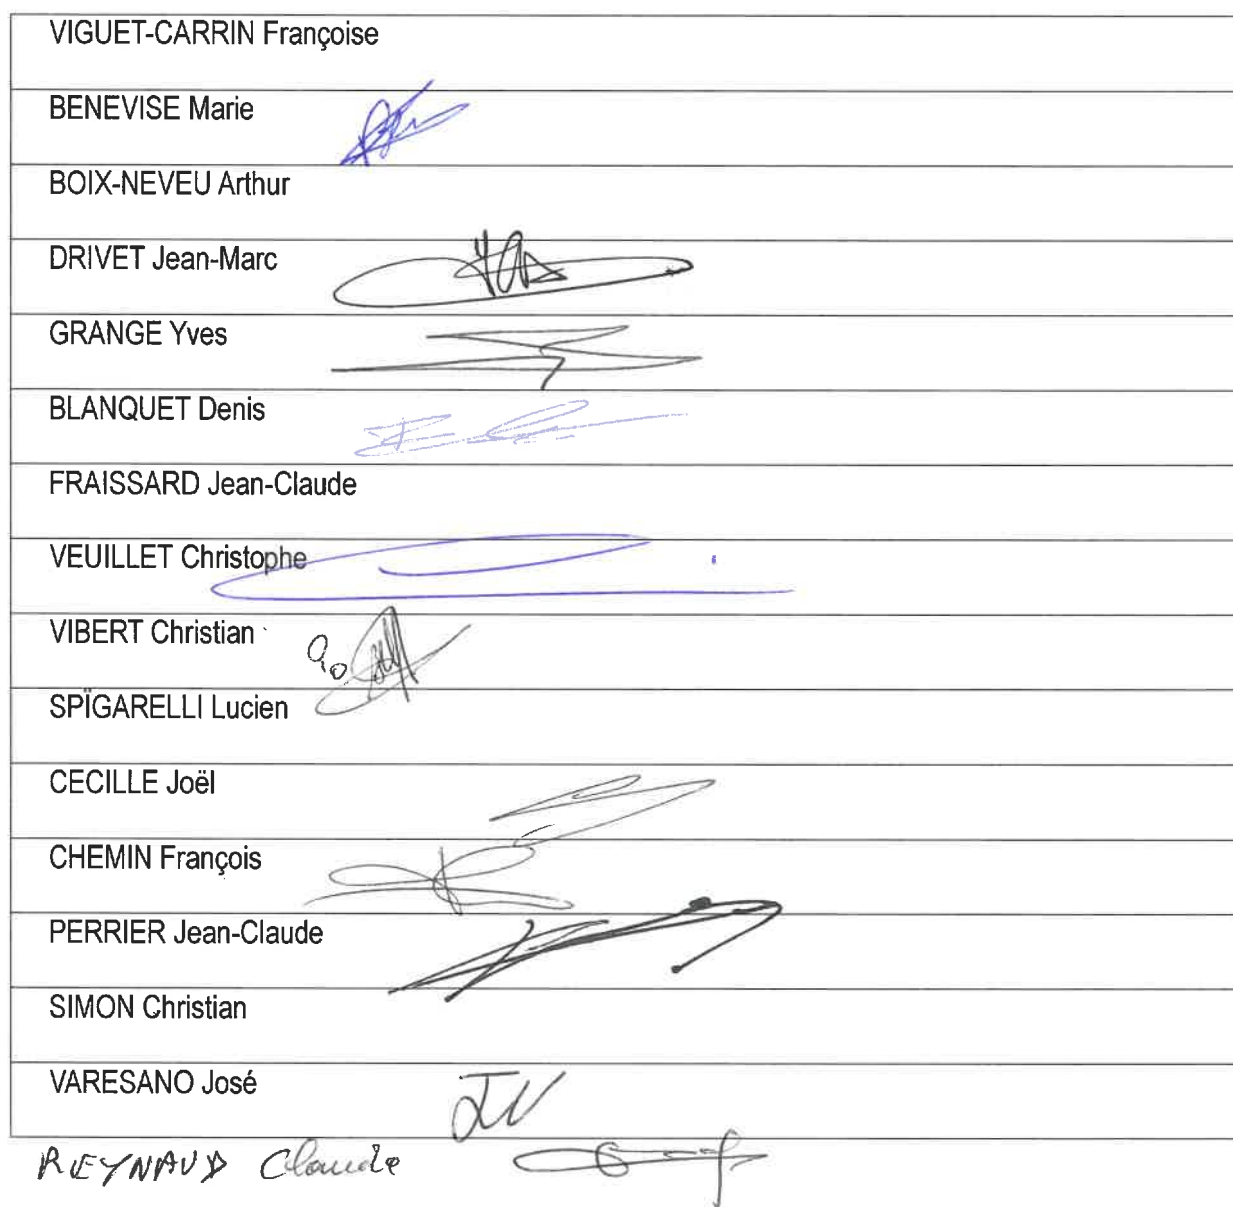 VIGUET-CARRIN Françoise
BENEVISE Marie
BOIX-NEVEU Arthur
DRIVET Jean-Marc
GRANGE Yves
BLANQUET Denis
FRAISSARD Jean-Claude
VEUILLET Christophe
VIBERT Christian
SPÏGARELLI Lucien
CECILLE Joël
CHEMIN François
PERRIER Jean-Claude
SIMON Christian
VARESANO José JV
REYNAUD Claude